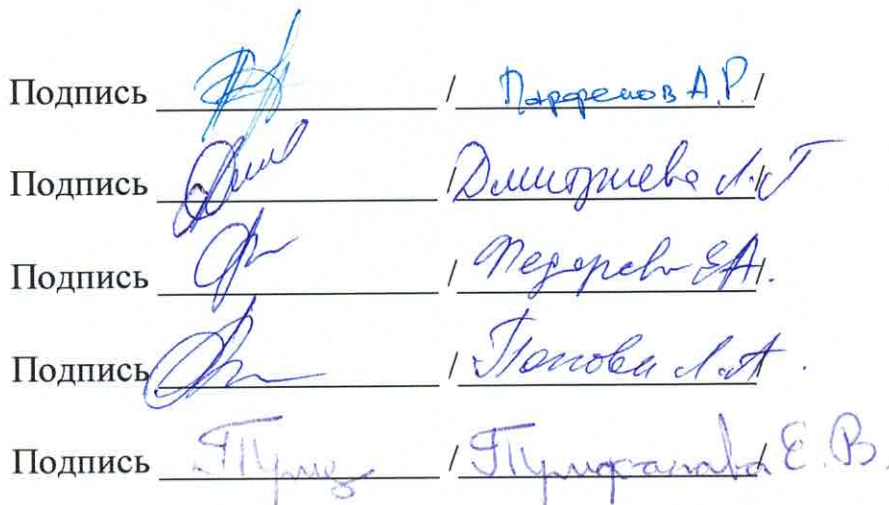 Подпись / Парфенов А.Р. /
Подпись / Дмитриева Л.Г /
Подпись / Федорова Е.А. /
Подпись / Попова Л.А. /
Подпись / Е.В. /